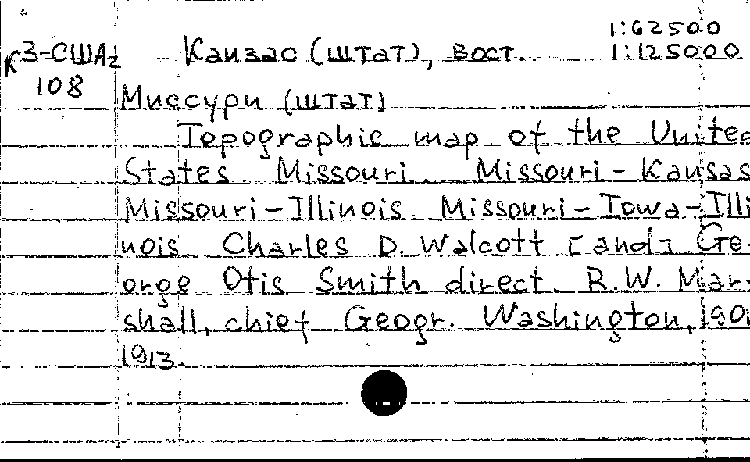 1:62500
К3-США2 Канзас (штат), вост. 1:125000
108
Миссури (штат)
Topographic map of the Unite
States. Missouri. Missouri-Kansas
Missouri-Illinois. Missouri-Iowa-Illi
nois. Charles D. Walcott [and] Ge-
orge Otis Smith direct. R.W. Mar
shall, chief Geogr. Washington, 190
1913.